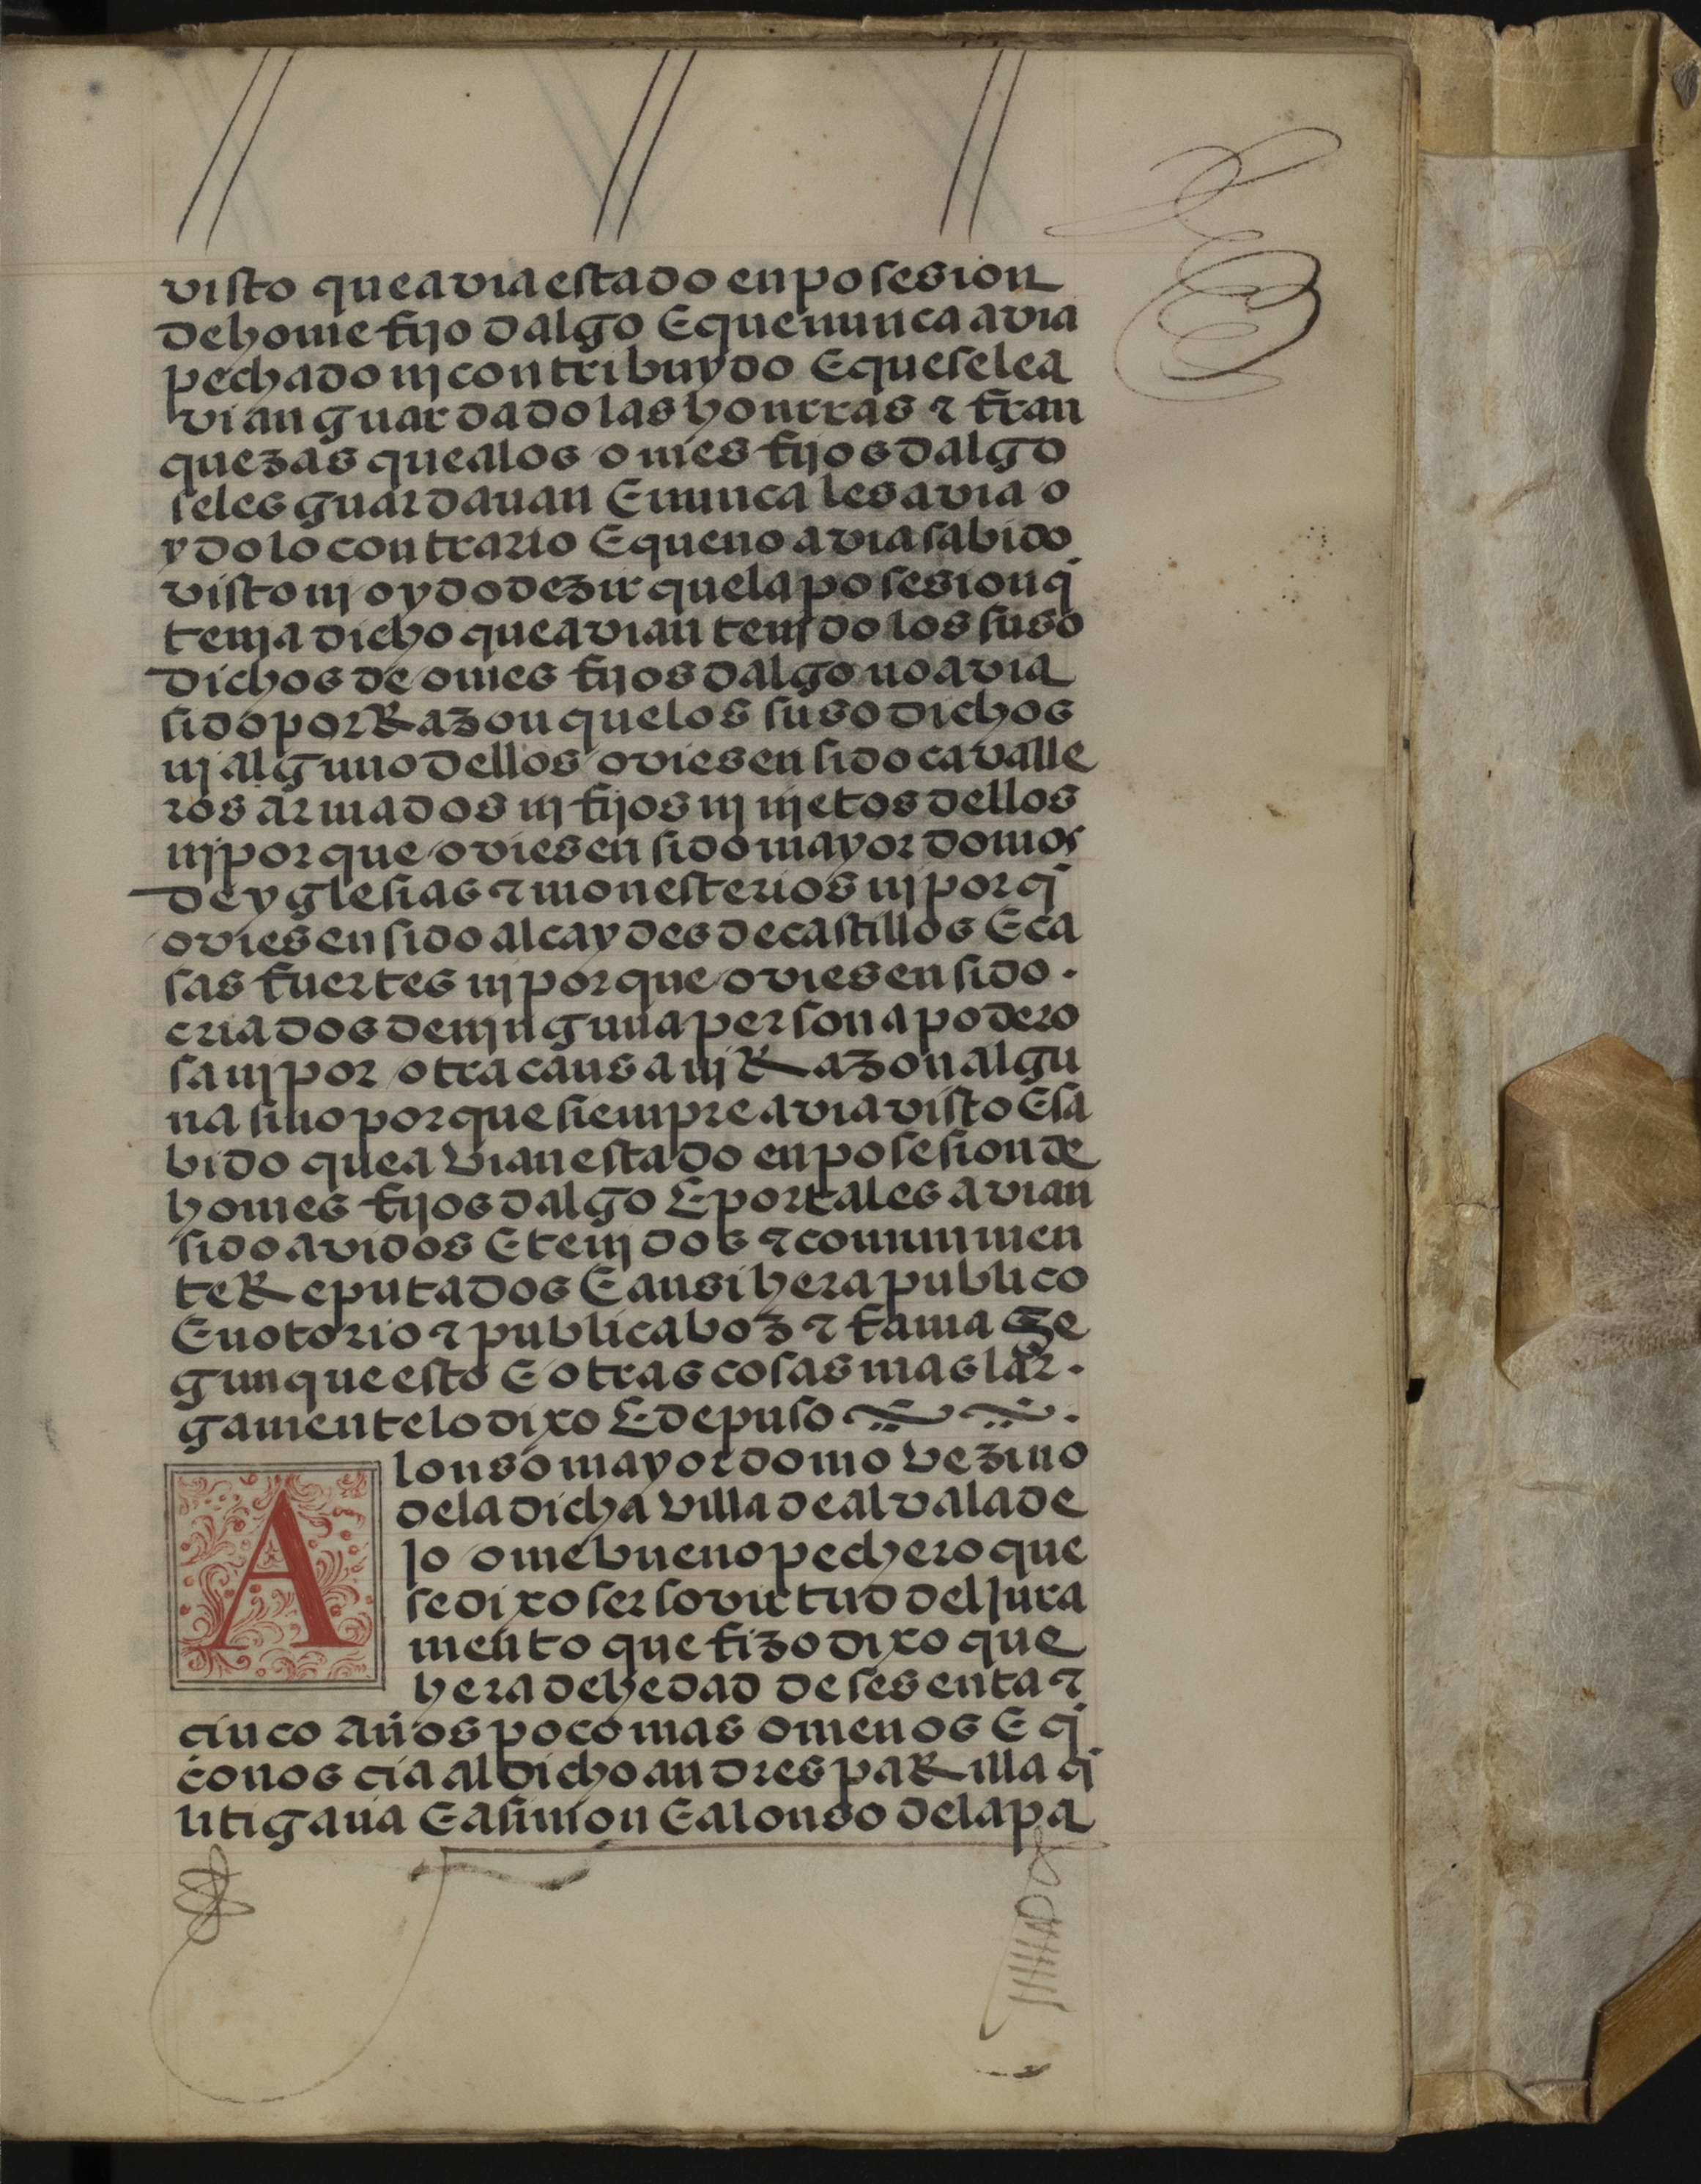 visto que avia estado en posesion
de home fijo dalgo E que nunca avia
pechado nj contribuydo E que se le a
vian guardado las honrras ⁊ fran
quezas que a los omes fijos dalgo
se les guardauan E nunca les avia o
ydo lo contrario E que no avia sabido
visto nj oydo dezir que la posesion q̃
tenja dicho que avian tenjdo los suso
dichos de omes fijos dalgo no avia
sido por Razon que los suso dichos
nj alguno dellos oviesen sido cavalle
ros armados nj fijos nj njetos dellos
nj por que oviesen sido mayordomos
de yglesias ⁊ monesterios nj por q̃
oviesen sido alcaydes de castillos E ca
sas fuertes nj por que oviesen sido .
criados de njnguna persona podero
sa nj por otra causa nj Razon algu
na sino por que siempre avia visto E sa
bido que avian estado en posesion de
homes fijos dalgo E por tales avian
sido avidos E tenjdos ⁊ comunmen
te Reputados E ansi hera publico
E notorio ⁊ publica boz ⁊ fama Se
gun que esto E otras cosas mas lar .
gamente lo dixo E depuso .
Alonso mayordomo vezino
de la dicha villa de alvalade
jo ome bueno pechero que
se dixo ser so virtud del Jura
mento que fizo dixo que
hera de hedad de sesenta ⁊
cinco años poco mas o menos E q̃
conoscia al dicho andres paRilla q̃
litigaua E a simon E alonso de la pa